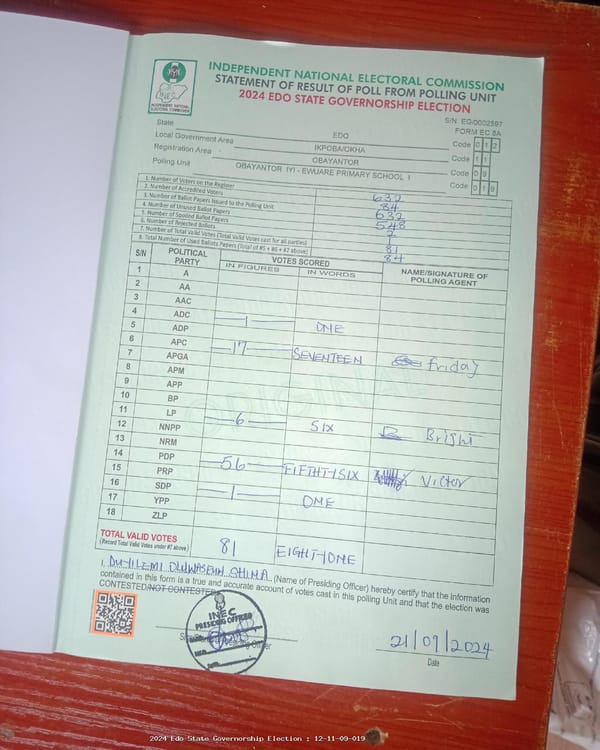 INDEPENDENT NATIONAL ELECTORAL COMMISSION
STATEMENT OF RESULT OF POLL FROM POLLING UNIT
2024 EDO STATE GOVERNORSHIP ELECTION
INDEPENDENT NATIONAL ELECTORAL COMMISSION
S/N: EG/0002597
FORM EC 8A
State EDO Code 0 1 2
Local Government Area IKPOBA/OKHA Code 1 1
Registration Area OBAYANTOR Code 0 9
Polling Unit OBAYANTOR 1YI - EWUARE PRIMARY SCHOOL 1 Code 0 1 9
1. Number of Voters on the Register 632
2. Number of Accredited Voters 84
3. Number of Ballot Papers Issued to the Polling Unit 632
4. Number of Unused Ballot Papers 548
5. Number of Spoiled Ballot Papers
6. Number of Rejected Ballots
7. Number of Total Valid Votes (Total Valid Votes cast for all parties) 81
8. Total Number of Used Ballots Papers (Total of #5 + #6 + #7 above) 84
S/N POLITICAL PARTY VOTES SCORED NAME/SIGNATURE OF POLLING AGENT
IN FIGURES IN WORDS
1 A
2 AA
3 AAC
4 ADC 1 ONE
5 ADP
6 APC 17 SEVENTEEN Friday
7 APGA
8 APM
9 APP
10 BP
11 LP 6 SIX Bright
12 NNPP
13 NRM
14 PDP 56 FIFTHY-SIX Victor
15 PRP
16 SDP 1 ONE
17 YPP
18 ZLP
ORIGINAL
TOTAL VALID VOTES 81 EIGHTY ONE
(Record Total Valid Votes under #7 above)
I, (Name of Presiding Officer) hereby certify that the information
contained in this form is a true and accurate account of votes cast in this polling Unit and that the election was
CONTESTED/NOT CONTESTED
INEC
PRESIDING OFFICER
21/09/2024
Date
2024 Edo State Governorship Election : 12-11-09-019